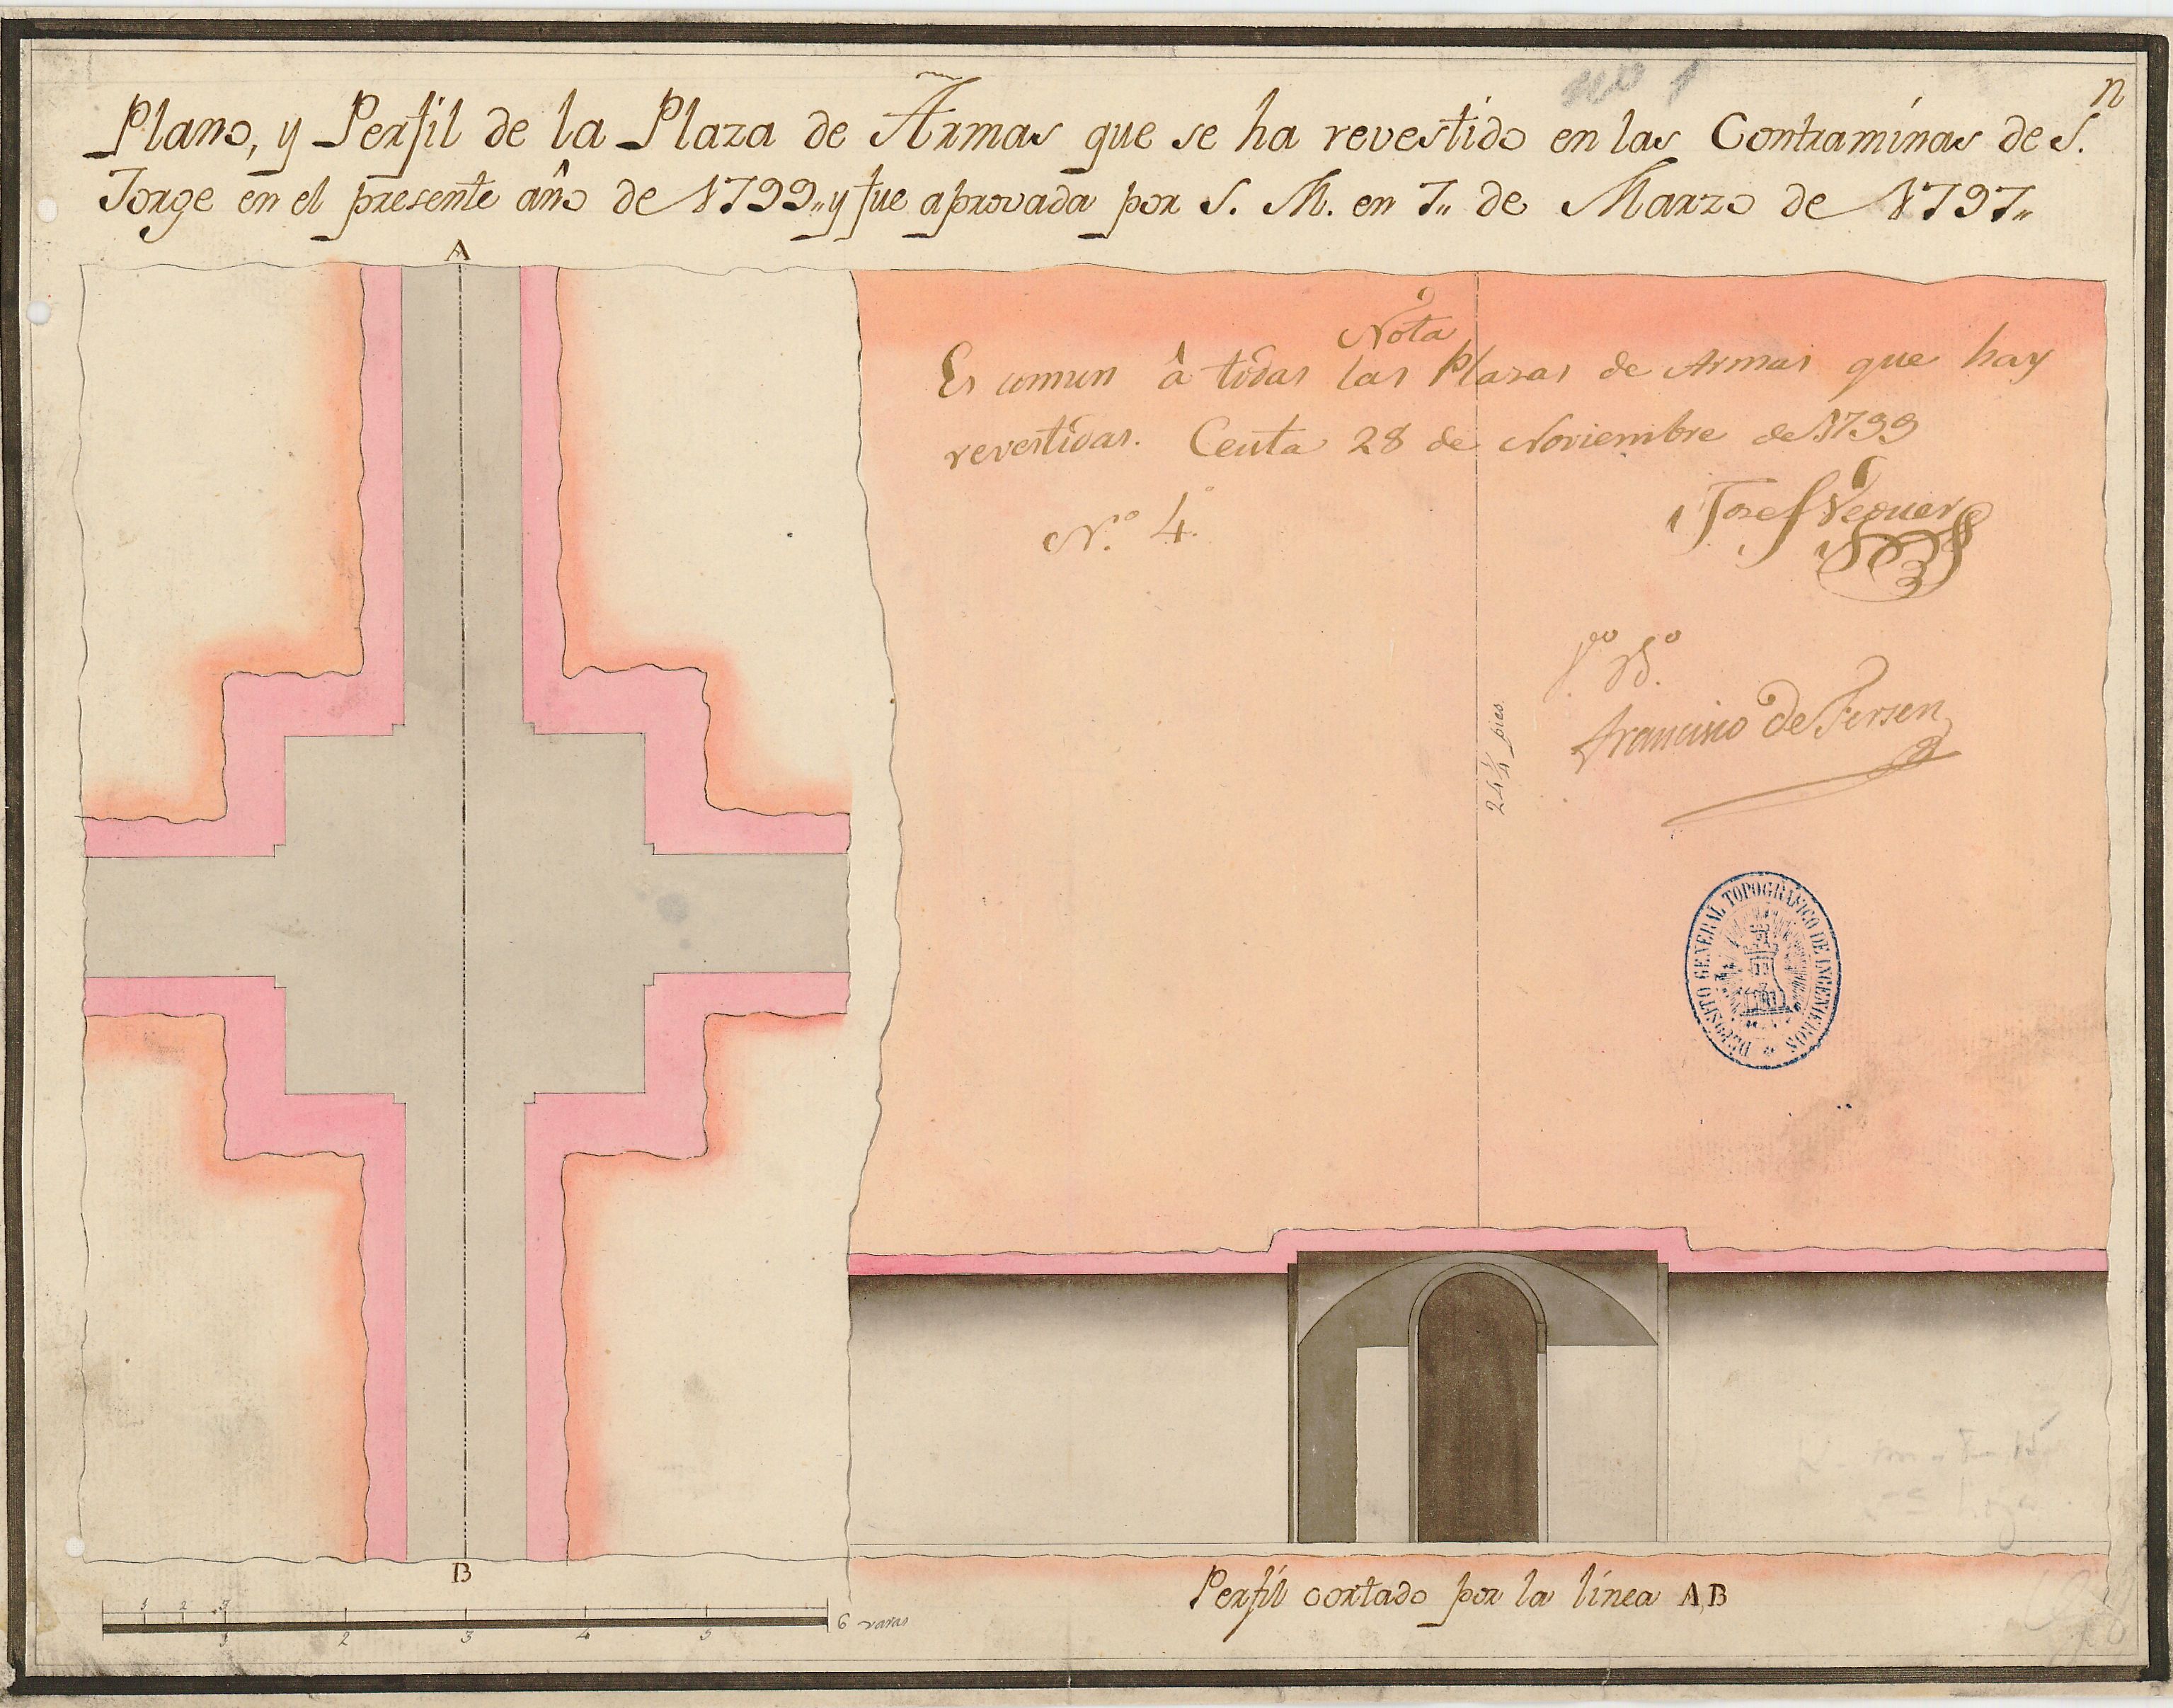 Plano, y Perfil de la Plaza de Armas que se ha revestido en las Contraminas de S.n
Jorge en el presente año de 1799,, y fue aprovada por S. M. en 7,, de Marzo de 1797,,
A
Nota
Es comun â todas las Plazas de Armas que hay
revestidas. Ceuta 28 de Noviembre de 1799
N.º 4.
Josef Vequer
V.º B.º
Francisco de Fersen
24 1/4 pies.
DEPOSITO GENERAL TOPOGRÁFICO DE INGENIEROS
B
Perfil cortado por la linea AB
1 2 3
1 2 3 4 5 6 varas